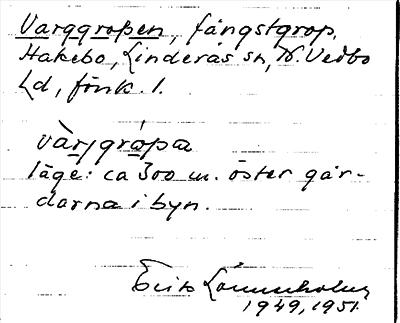 Varggropen, fångstgrop,
Hakebo, Linderås sn, N. Vedbo
hd, Jönk. l.
vàrjgråpa
läge: ca 300 m. öster går-
darna i byn.
Erik
1949, 1951.